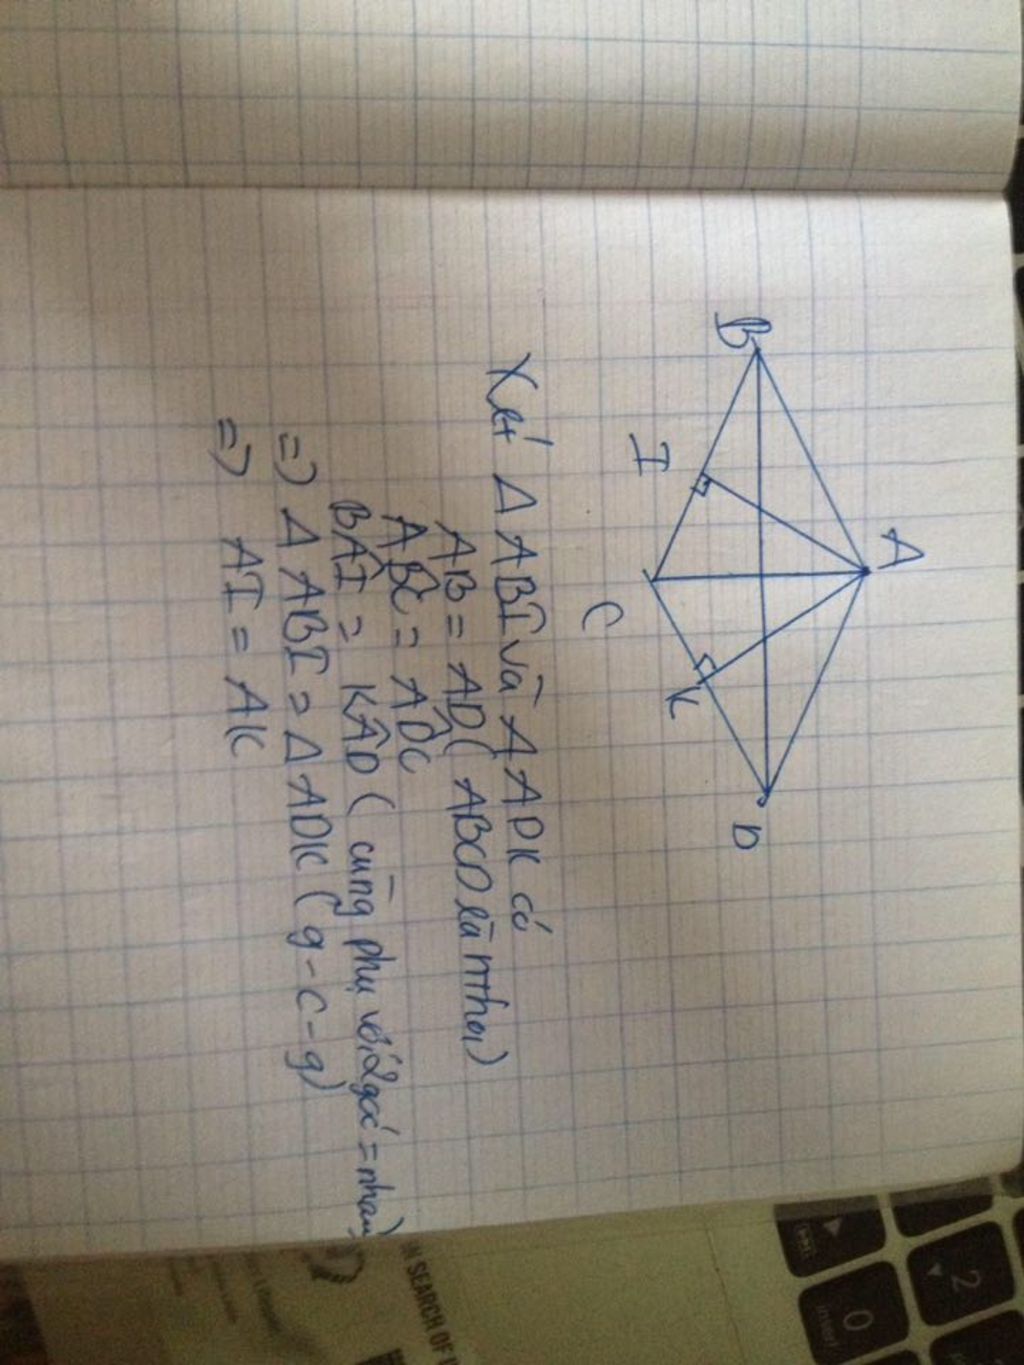 A
B
D
I
K
C
Xét Δ ABI và Δ ADK có
AB = AD ( ABCD là hthoi)
ABĈ = ADĈ
BÂI = KÂD ( cùng phụ với 2 góc = nhau)
=> Δ ABI = Δ ADK ( g - c - g)
=> AI = AK
IN SEARCH OF
2
0